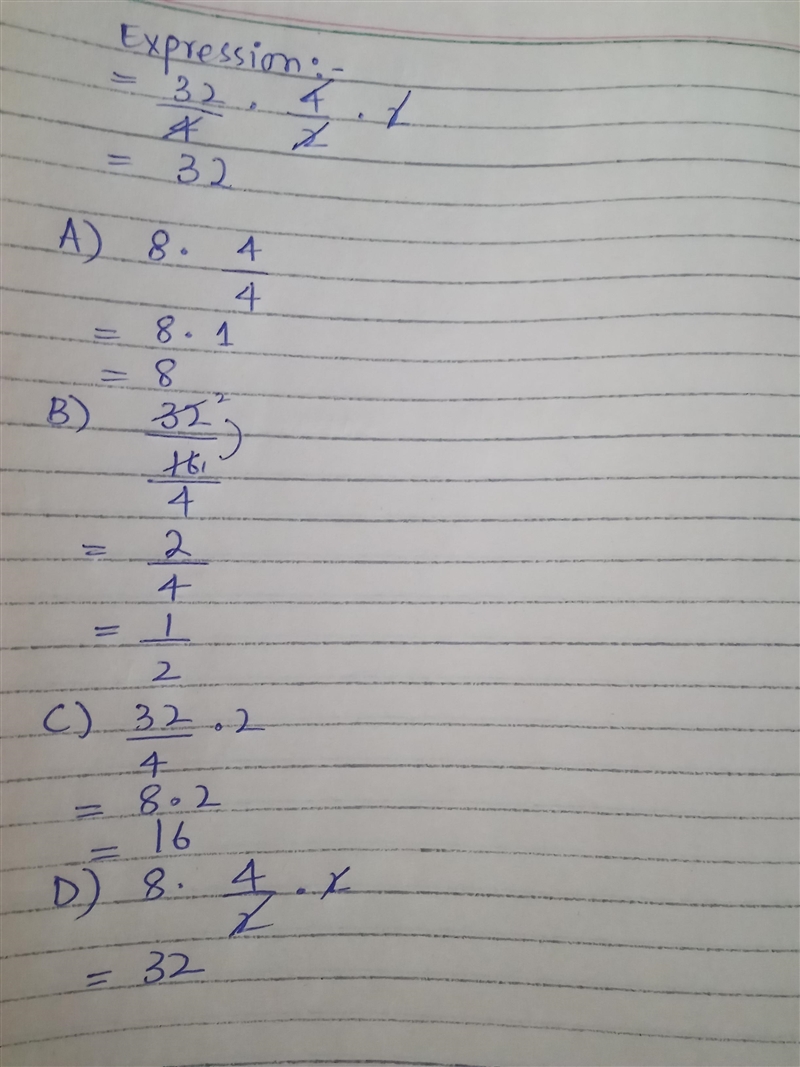 Expression:-
= 32/4 . 4/2 . 2
= 32
A) 8 . 4/4
= 8 . 1
= 8
B) 32 2 .
16 1
4
= 2/4
= 1/2
C) 32/4 . 2
= 8 . 2
= 16
D) 8 . 4/2 . 2
= 32